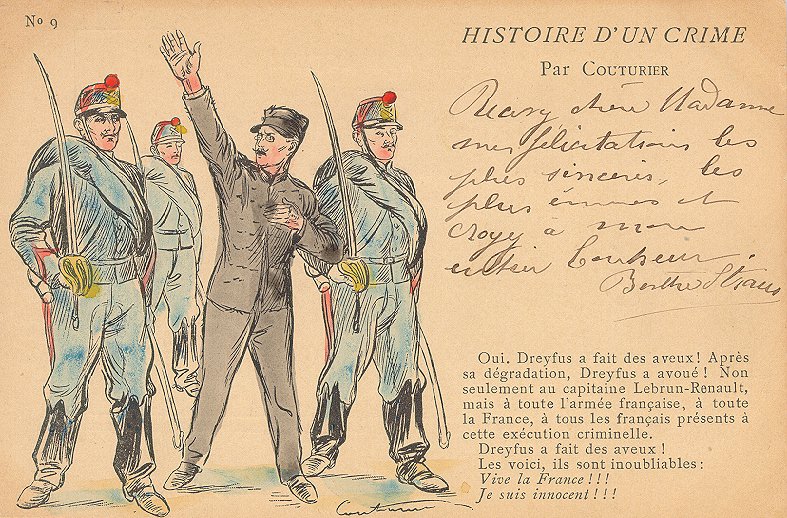 No 9
HISTOIRE D'UN CRIME
Par COUTURIER
chère Madame
mes félicitations les
plus sincères, les
plus émues et
croyez à mon
entier bonheur.
Berthe Straus
Oui. Dreyfus a fait des aveux! Après
sa dégradation, Dreyfus a avoué! Non
seulement au capitaine Lebrun-Renault,
mais à toute l'armée française, à toute
la France, à tous les français présents à
cette exécution criminelle.
Dreyfus a fait des aveux!
Les voici, ils sont inoubliables:
Vive la France!!!
Je suis innocent!!!
Couturier